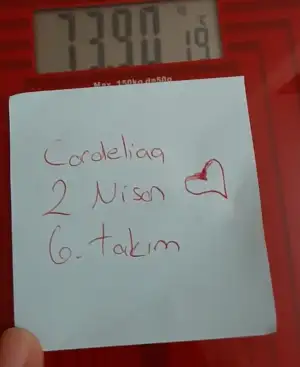 Max. 150kg d=50g
Cordeliaa
2 Nisan
6. takım